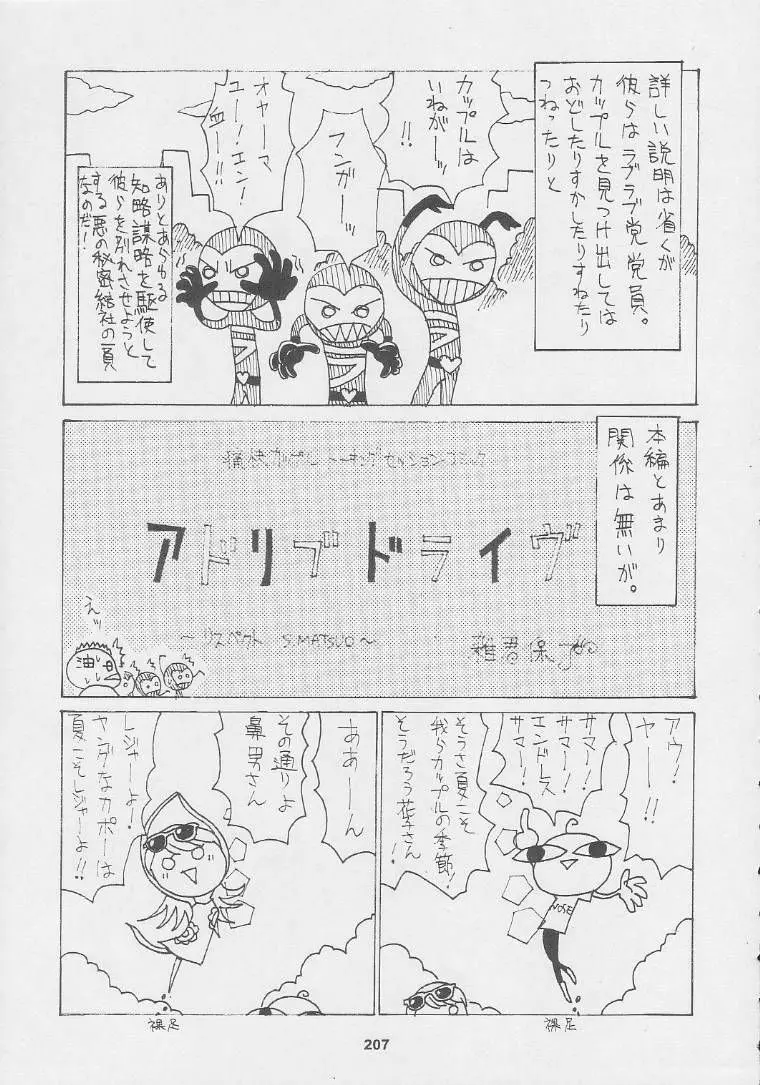 詳しい説明は省くが
彼らはラブラブ党党員。
カップルを見つけ出しては
おどしたりすかしたりすねたり
つねったりと
カップルは
いねがーッ
!!
フンガーッ
オヤーマ
ユー!エン!
ー!!
ありとあらゆる
知略謀略を駆使して
彼らを別れさせようと
する悪の秘密結社の員
なのだ!
本編とあまり
関係は無いが。
痛快カップルトーキングセッションコミック
アドリブドライヴ
〜リスペクト S.MATSUO〜
えッ
油
アウ!
ヤー!!
サマー!
サマー!
エンドレス
サマー!
そうさ夏こそ
我らカップルの季節!
そうだろう花子さん
!
NOSE
裸足
ああーん
その通りよ
鼻男さん
レジャーよー!
ヤングなカポーは
夏こそレジャーよ!!
裸足
207